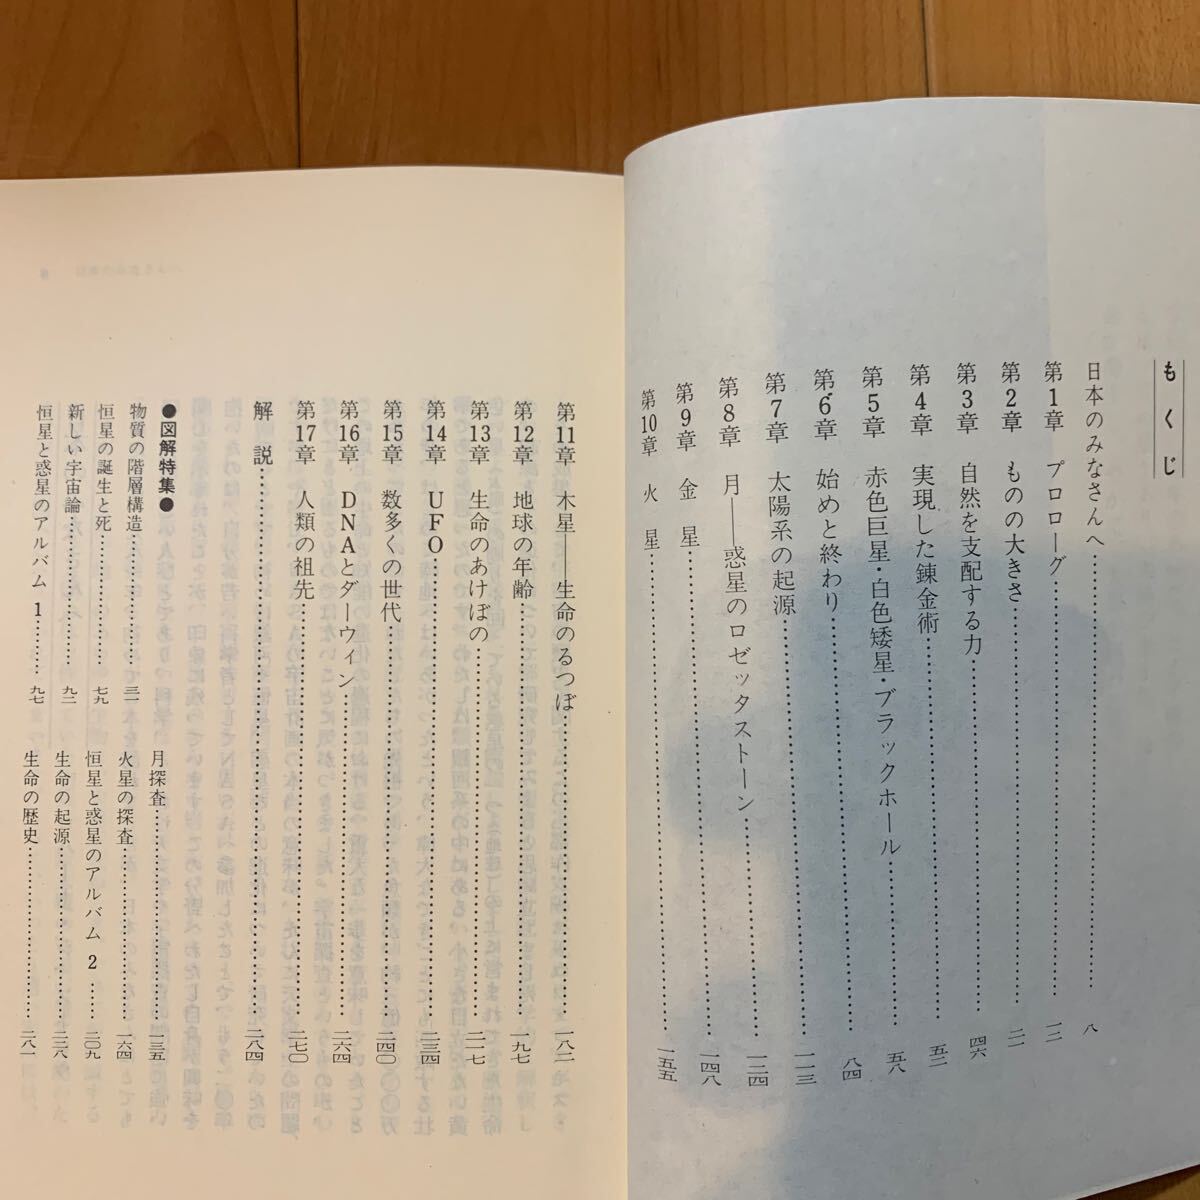 もくじ
日本のみなさんへ……八
第1章 プロローグ……一二
第2章 ものの大きさ……二一
第3章 自然を支配する力……四六
第4章 実現した錬金術……五二
第5章 赤色巨星・白色矮星・ブラックホール……五八
第6章 始めと終わり……八四
第7章 太陽系の起源……一一三
第8章 月——惑星のロゼッタストーン……一二四
第9章 金星……一四八
第10章 火星……一五五
第11章 木星——生命のるつぼ……一八二
第12章 地球の年齢……一九七
第13章 生命のあけぼの……二一七
第14章 UFO……二三四
第15章 数多くの世代……二四〇
第16章 DNAとダーウィン……二六四
第17章 人類の祖先……二七〇
解説……二八四
●図解特集●
物質の階層構造……三一
恒星の誕生と死……七九
新しい宇宙論……九二
恒星と惑星のアルバム 1……九七
月探査……一三五
火星の探査……一六四
恒星と惑星のアルバム 2……二〇九
生命の起源……二三八
生命の歴史……二八一